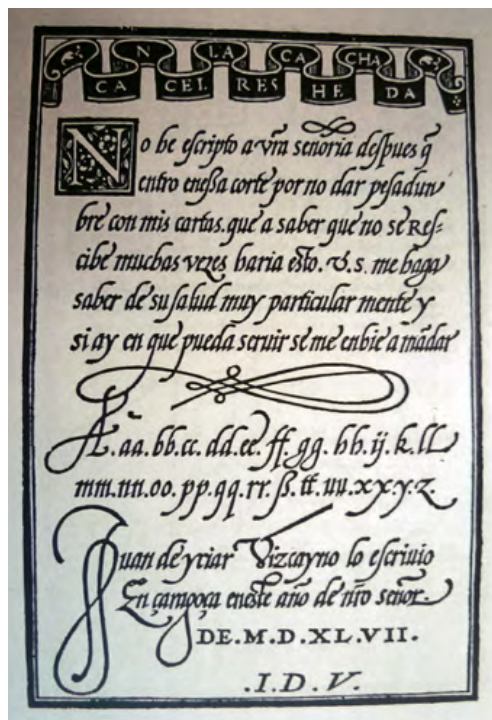 CA N CEL LA RES CA HE CHA DA
No he eſcripto a vr̃a señoria deſpues q̃
entro eneſſa corte por no dar peſadun
bre con mis cartas. que a saber que no se Reſ=
cibe muchas vezes haria eſto. V. s. me haga
saber de su ſalud muy particular mente y
si ay en que pueda seruir se me enbie a mãdar
A. aa. bb. cc. dd. ee. ff. gg. hh. ij. k. ll
mm. nn. oo. pp. qq. rr. ß. tt. uu. x x. y. z.
Juan de yciar Vizcayno lo eſcriuio
En çaragoça eneſte año de nr̃o señor.
DE. M. D. XL. VII.
.I. D. V.